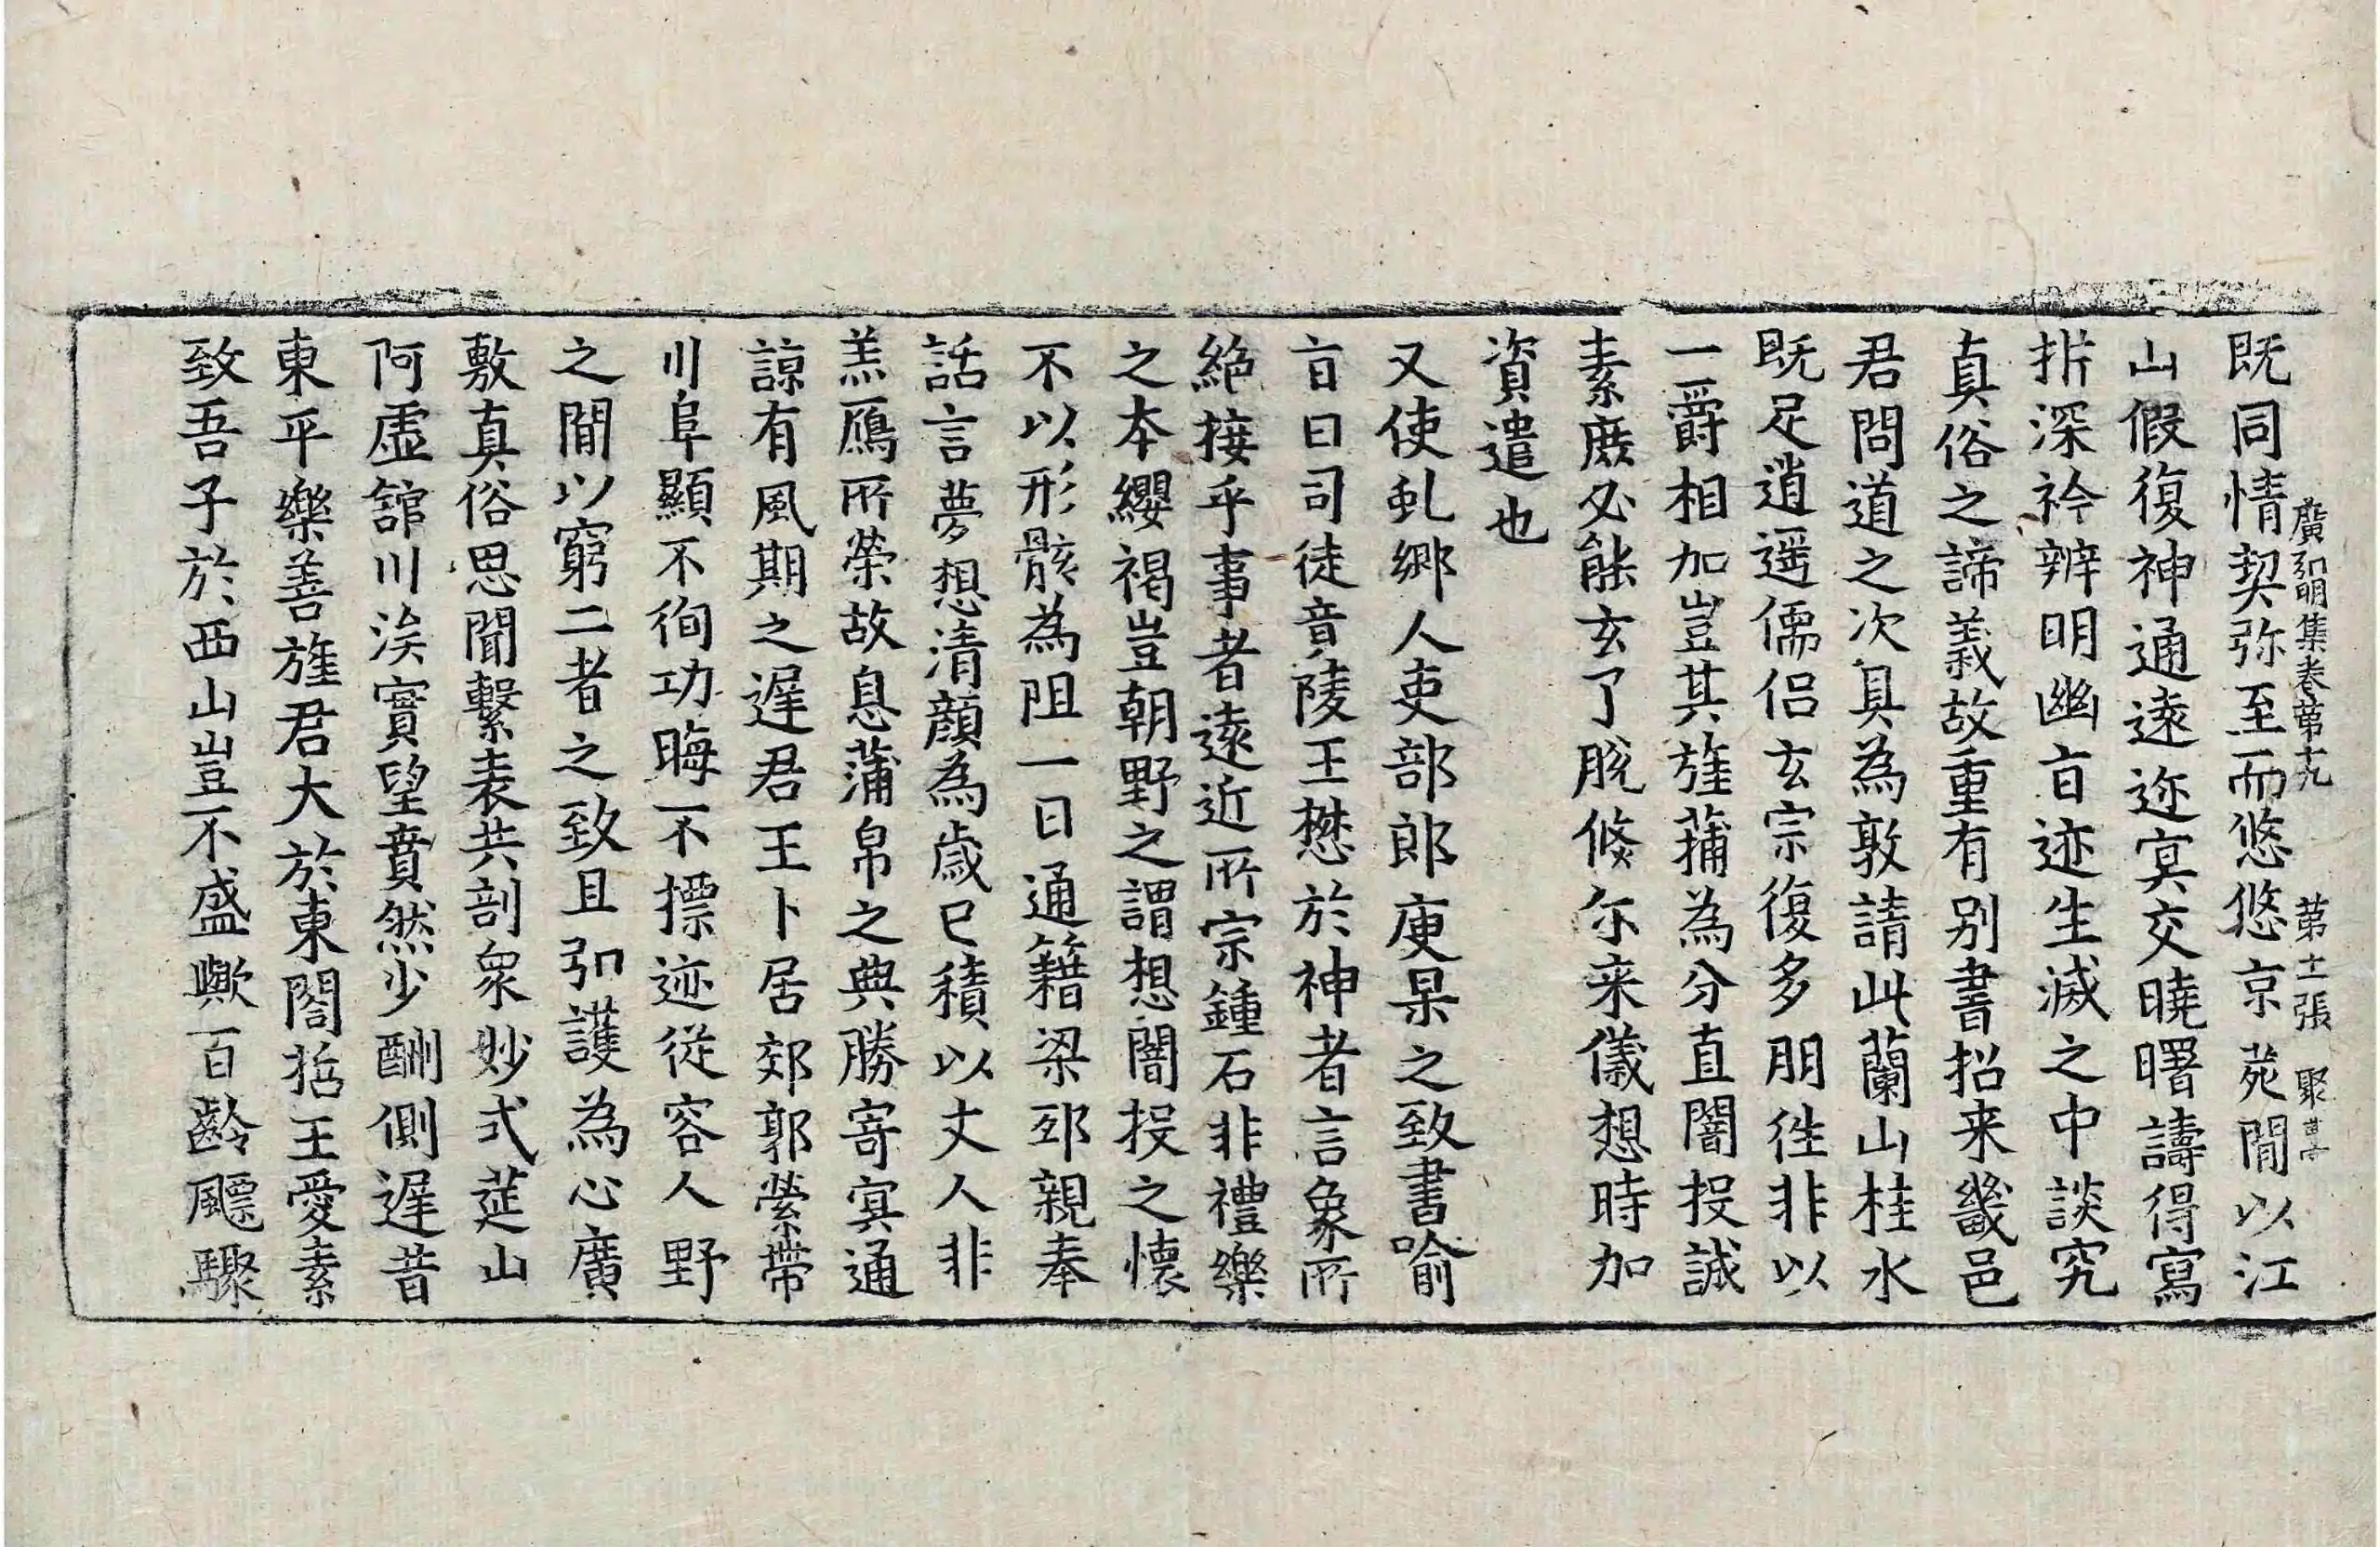 廣弘明集卷第十九 第十一張 聚
既同情契弥至而悠悠京苑閒以江
山假復神通遠迹冥交曉曙譸得寫
㭊深衿辨明幽旨迹生滅之中談究
真俗之諦義故重有别書招来畿邑
君問道之次具為敦請此蘭山桂水
既足逍遥儒侣玄宗復多朋徃非以
一爵相加豈其旌蒲為分直闇投誠
素庻必能玄了脱倏尒来儀想時加
資遣也
又使虬郷人吏部郎庾杲之致書喻
㫖曰司徒竟陵王懋於神者言象所
絶接乎事者遠近所宗鍾石非禮樂
之本纓褐豈朝野之謂想闇投之懷
不以形骸為阻一日通籍梁邸親奉
話言夢想清顔為歲已積以丈人非
羔鴈所榮故息蒲帛之典勝寄冥通
諒有風期之遲君王卜居郊郭縈帶
川阜顯不徇功晦不摽迹從容人野
之閒以窮二者之致且弘護為心廣
敷真俗思聞繫表共剖衆妙式莚山
阿虚舘川涘實望賁然少酬側遲昔
東平樂善旌君大於東閤哲王愛素
致吾子於西山豈不盛歟百齡飈驟